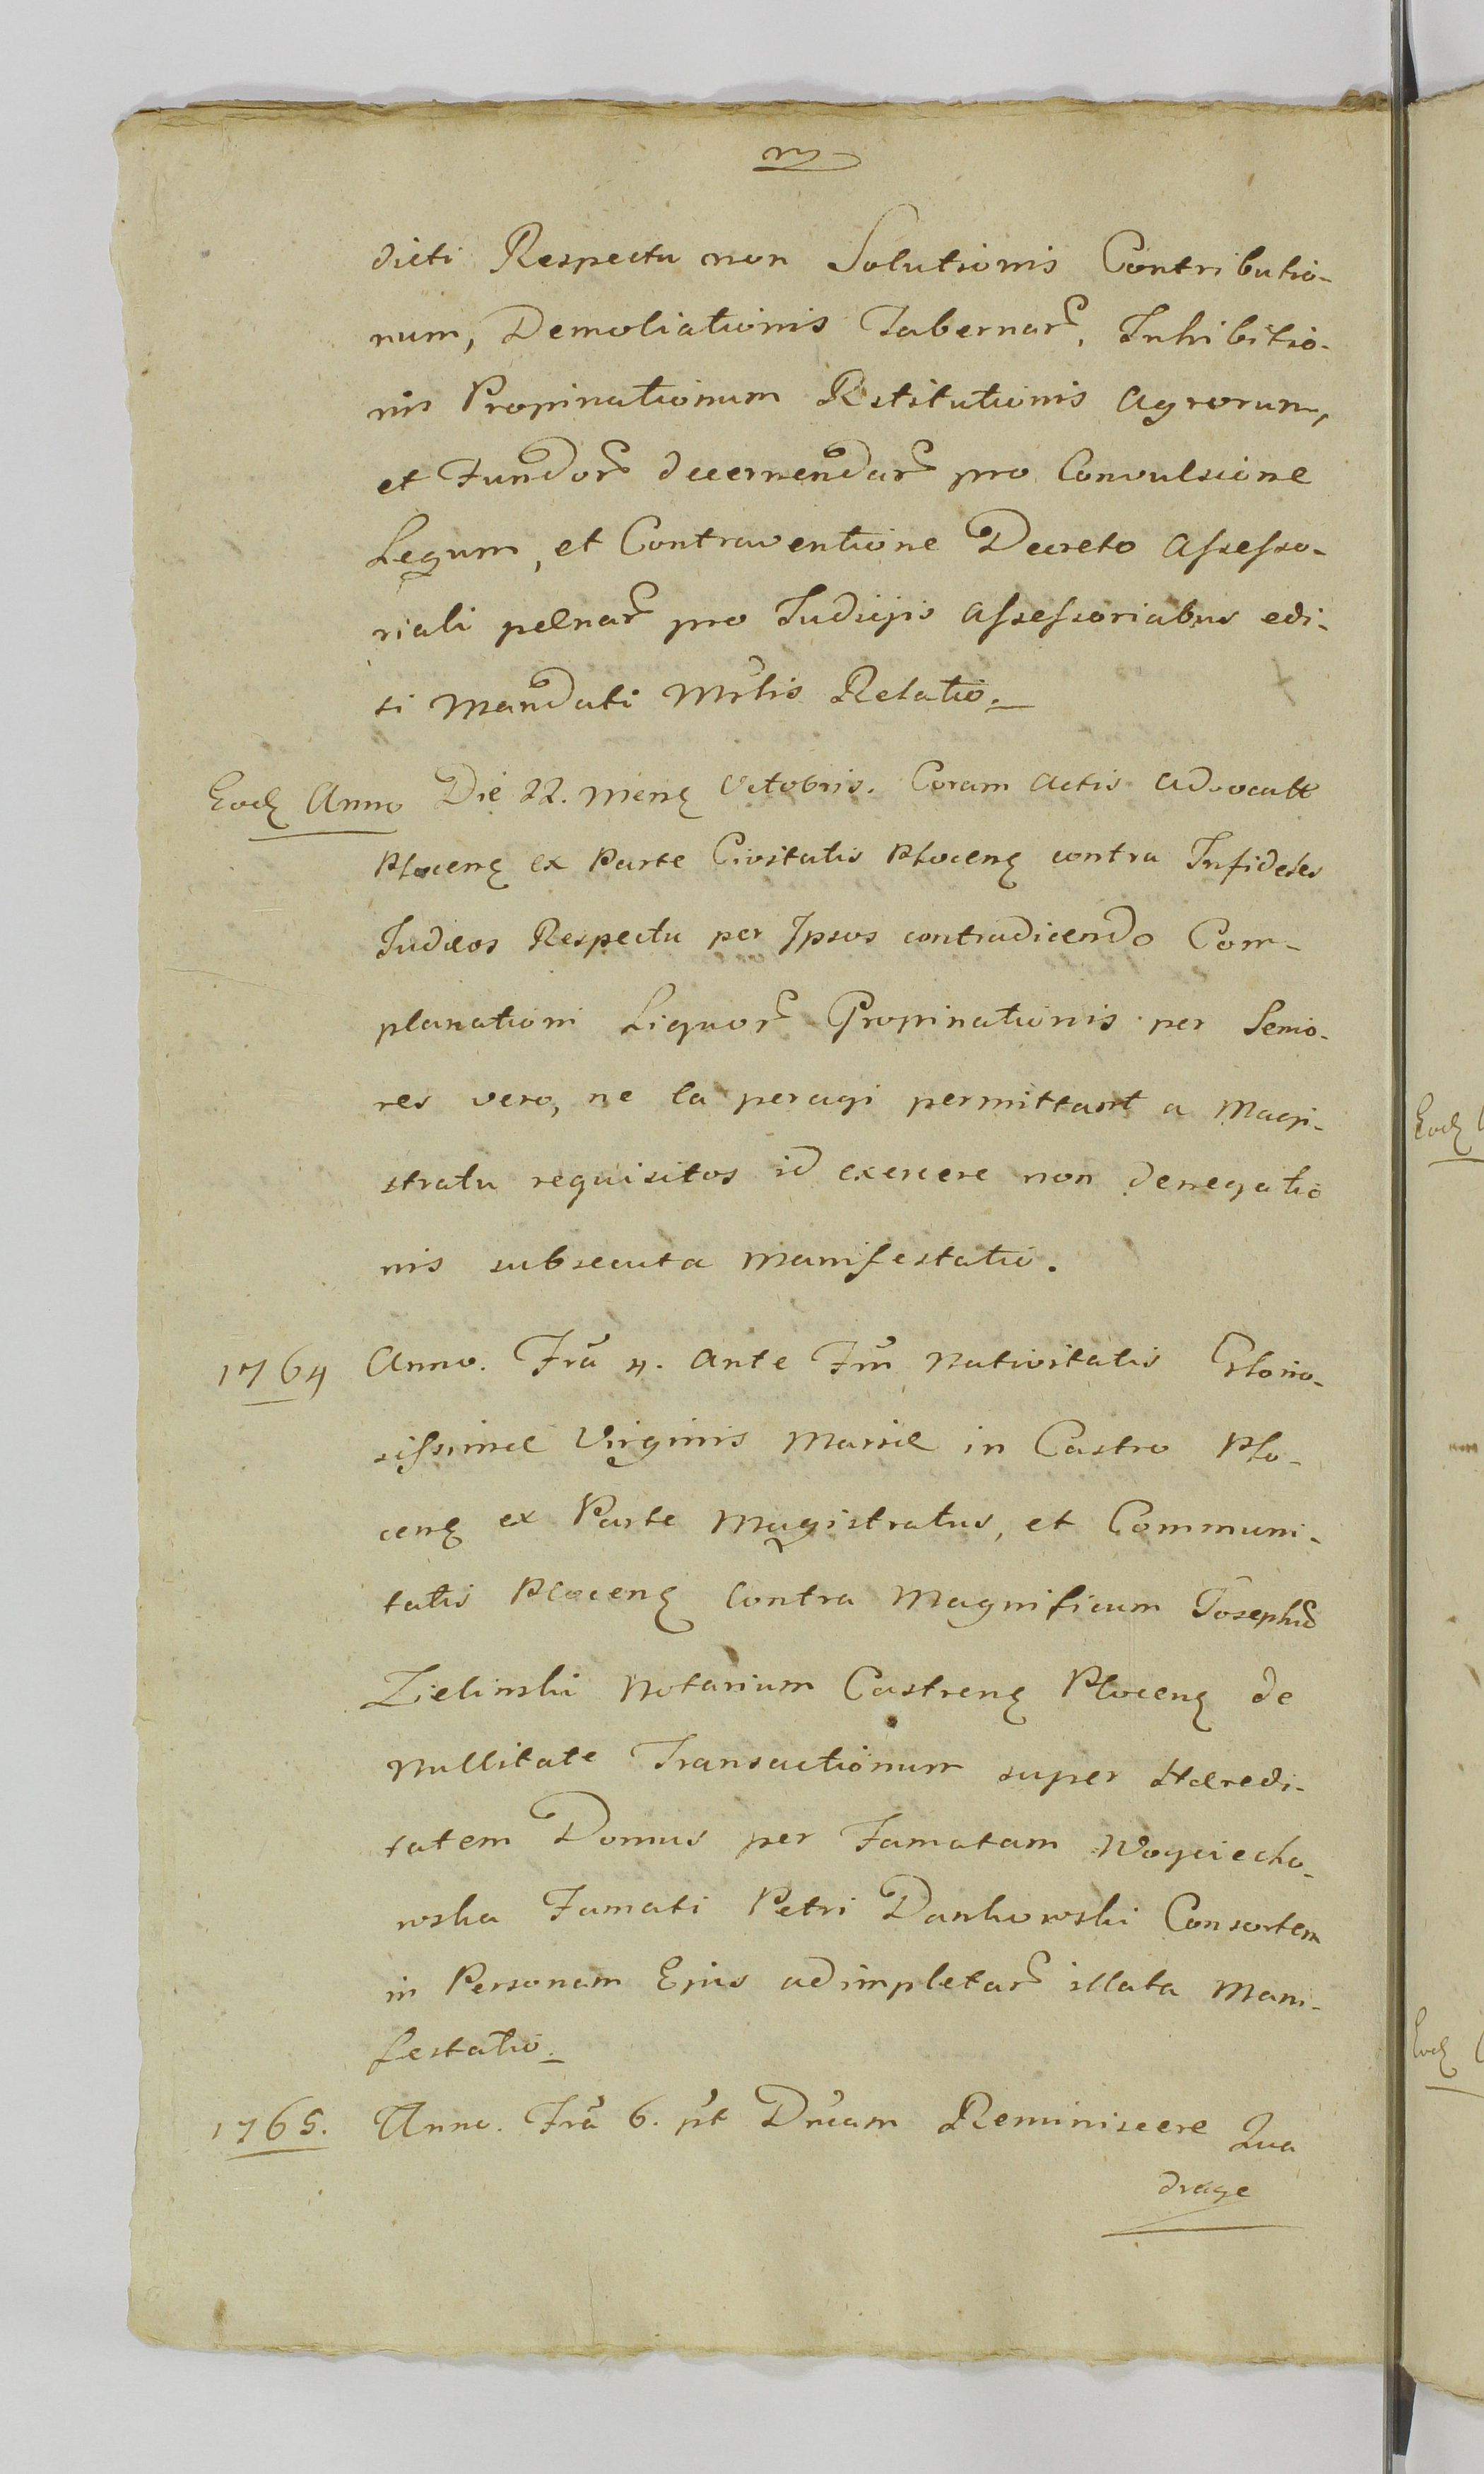 dicti Respectu non Solutionis Contributio-
num, Demoliationis Tabernar, Inhibitio-
nis Propinationum Restitutionis Agrorum,
et Fundor decernendar pro Convulsione
Legum, et Contraventione Decreto Assesso-
riali pænar pro Judicijs Assessoriabus edi-
ti Mandati Mrlis Relatio.
Eod Anno Die 22. Mens Octobris. Coram Actis Advocatt
Plocens ex Parte Civitatis Plocens contra Infideles
Judæos Respectu per Ipsos contradicendo Com-
planationi Liquor Propinationis per Senio-
res vero, ne ea peragi permittant a Magi-
stratu requisitos id exercere non denegatio
nis subsecuta Manifestatio.
1764 Anno. Fra 4. Ante Fm Nativitatis Glorio-
sissimæ Virginis Mariæ in Castro Plo-
cens ex Parte Magistratus, et Communi-
tatis Plocens Contra Magnificum Josephu
Zielinski Notarium Castrens Plocens de
Nullitate Transactionum super Hæredi-
tatem Domus per Famatam Woyciecho-
wska Famati Petri Dankowski Consortem
in Personam Ejus adimpletar illata Mani-
festatio.
1765. Anno. Fra 6. pt Dnicam Reminiscere Qua
drage
Eod
Eod